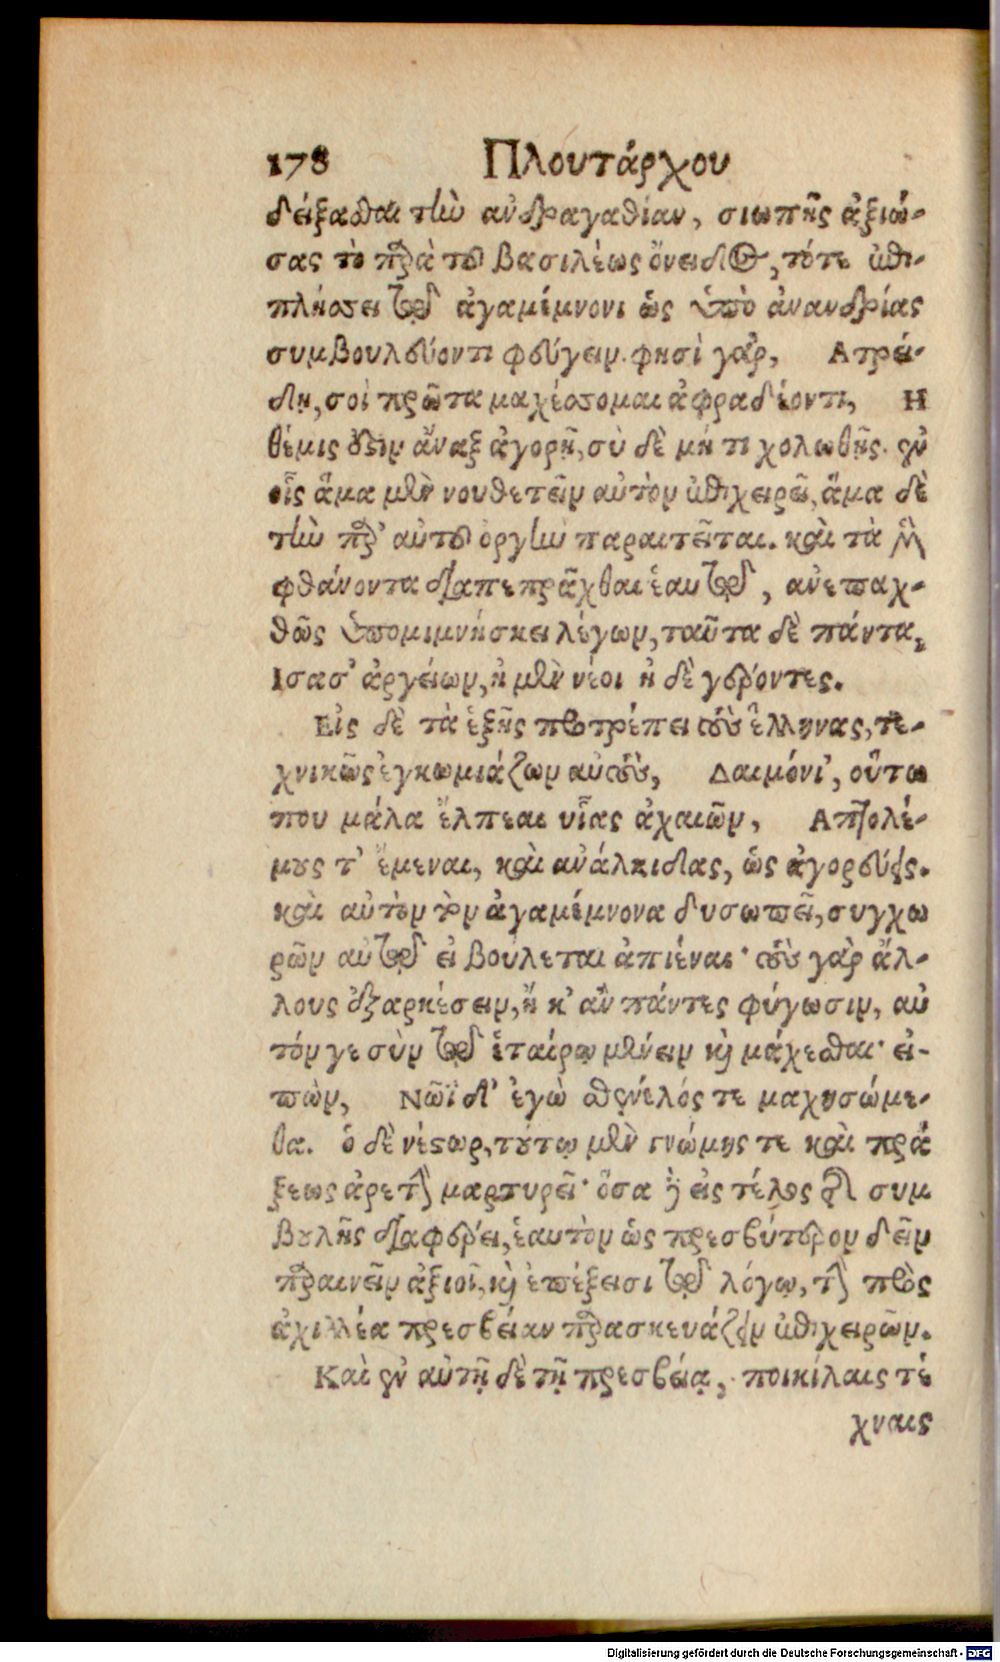 178 Πλουτάρχου
δείξασθαι τὴν ἀνδραγαθίαν, σιωπῆς ἀξιώ-
σας τὸ παρὰ τοῦ βασιλέως ὄνειδος, τότε ἐπι-
πλήσσει τῷ ἀγαμέμνονι ὡς ὑπὸ ἀνανδρίας
συμβουλεύοντι φεύγειν. φησὶ γὰρ, Ατρεί-
δη, σοὶ πρῶτα μαχέσσομαι ἀφραδέοντι, Η
θέμις ὅτιν ἄναξ ἀγορῇ, σὺ δὲ μή τι χολωθῇς. ἐν
οἷς ἅμα μὲν νουθετεῖν αὐτὸν ἐπιχειρεῖ, ἅμα δὲ
τὴν παρ' αὐτοῦ ὀργὴν παραιτεῖται. καὶ τὰ μὴ
φθάνοντα διαπεπρᾶχθαι ἑαυτῷ, ἀνεπαχ-
θῶς ὑπομιμνήσκει λέγων, ταῦτα δὲ πάντα,
Ισασ' ἀργείων, ἠ μὲν νέοι ἠ δὲ γέροντες.
Εἰς δὲ τὰ ἑξῆς προτρέπει τοὺς ἕλληνας, τε-
χνικῶς ἐγκωμιάζων αὐτοὺς, Δαιμόνι', οὕτω
που μάλα ἔλπεαι υἷας ἀχαιῶν, Απτολέ-
μους τ' ἔμεναι, καὶ ἀνάλκιδας, ὡς ἀγορεύεις.
καὶ αὐτὸν τὸν ἀγαμέμνονα δυσωπεῖ, συγχω
ρῶν αὐτῷ εἰ βούλεται ἀπιέναι· τοὺς γὰρ ἄλ-
λους ἐξαρκέσειν, ἤ κ' ἂν πάντες φύγωσιν, αὐ
τόν γε σὺν τῷ ἑταίρῳ μένειν καὶ μάχεσθαι· εἰ-
πὼν, Νῶϊ δ' ἐγὼ σθένελός τε μαχησώμε-
θα. ὁ δὲ νέστωρ, τούτῳ μὲν γνώμης τε καὶ πρά
ξεως ἀρετὴν μαρτυρεῖ· ὅσα δὲ εἰς τέλος περὶ συμ
βουλῆς διαφέρει, ἑαυτὸν ὡς πρεσβύτερον δεῖν
παραινεῖν ἀξιοῖ, καὶ ἐπέξεισι τῷ λόγῳ, τὴν πρὸς
ἀχιλλέα πρεσβείαν παρασκευάζειν ἐπιχειρῶν.
Καὶ ἐν αὐτῇ δὲ τῇ πρεσβείᾳ, ποικίλαις τέ
χναις
Digitalisierung gefördert durch die Deutsche Forschungsgemeinschaft - DFG